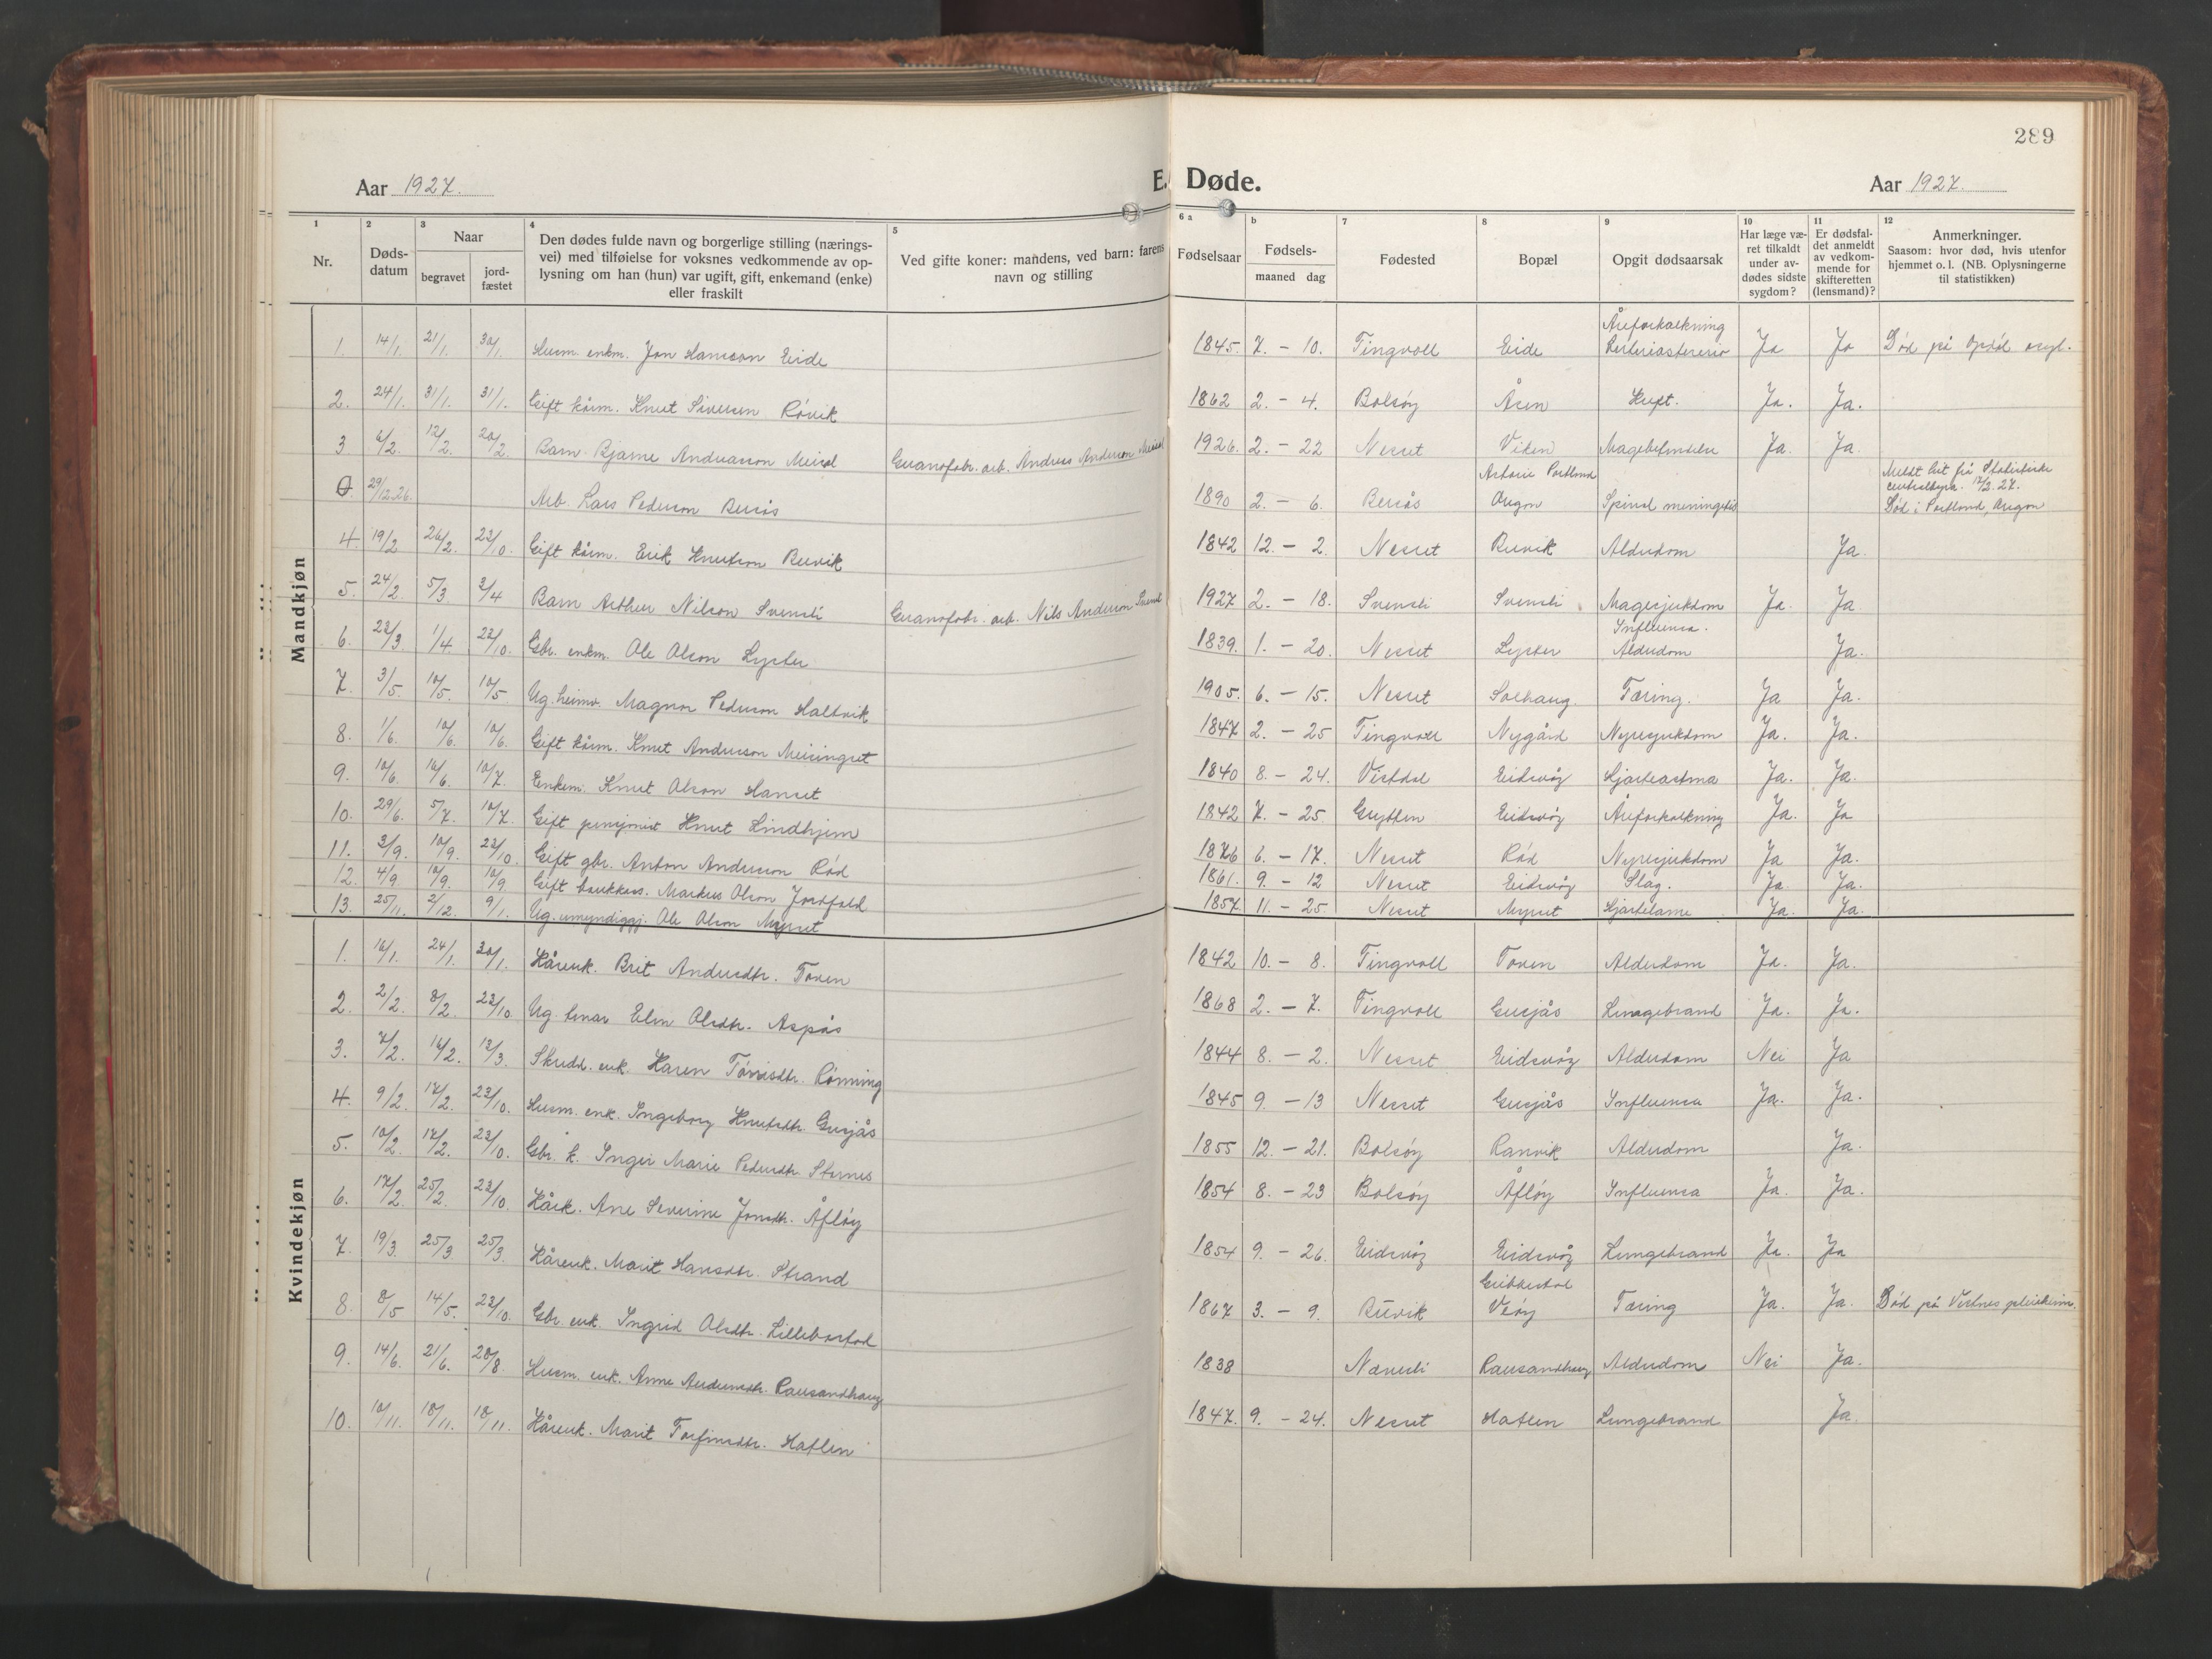 289
Aar 1927.
E. Døde.
Aar 1927.
1 2 3 4 5 6 a b 7 8 9 10 11 12
Nr.
Døds-
datum
Naar
begravet
jord-
fæstet
Den dødes fulde navn og borgerlige stilling (nærings-
vei) med tilføielse for voksnes vedkommende av op-
lysning om han (hun) var ugift, gift, enkemand (enke)
eller fraskilt
Ved gifte koner: mandens, ved barn: farens
navn og stilling
Fødselsaar
Fødsels-
maaned dag
Fødested
Bopæl
Opgit dødsaarsak
Har læge væ-
ret tilkaldt
under av-
dødes sidste
sygdom?
Er dødsfal-
det anmeldt
av vedkom-
mende for
skifteretten
(lensmand)?
Anmerkninger.
Saasom: hvor død, hvis utenfor
hjemmet o. l. (NB. Oplysningerne
til statistikken)
Mandkjøn
1. 14/1. 21/1. 30/1. Husm. enkm. Jon Hansson Eide 1845. 7. - 10. Tingvoll Eide Åreforkalkning Ja Ja Död på Opdöl asyl.
2. 24/1. 31/1. 31/1. Gift kårm. Knut Siversen Rövik 1862 2. - 4. Bolsöy Åsen Kreft. Ja. Ja.
3 6/2. 12/2. 20/2. Barn Bjarne Andreasson Meisal Guanofabr. arb. Andreas Anderson Meisal 1926. 2. - 22 Nesset Viken Ja. Ja.
0. 29/12.26. Arb. Lars Pederson Bersås 1890 2. - 6. Bersås Astoria Portland Oregon Spinal meningitis Meldt hit frå Statistiske centralbyrå. 17/3. 27. Död i Portland, Oregon
4. 19/2 26/2. 23/10. Gift kårm. Erik Knutson Buvik 1842 12. - 2. Nesset Buvik Alderdom Ja.
5. 24/2. 5/3. 3/4 Barn Arthur Nilson Svensli Guanofabr. arb. Nils Anderson Svensli 1927 2. - 18. Svensli Svensli Magesjukdom Ja. Ja.
6. 23/3 1/4. 23/10. Gbr. enkm. Ole Olson Lyster 1839. 1. - 20. Nesset Lyster Influensa. Alderdom Ja.
7. 3/5. 10/5. 10/5 Ug. heimv. Magnor Pederson Haltvik 1905. 6. - 15. Nesset Solhaug. Tæring. Ja Ja.
8. 1/6. 10/6. 10/6. Gift kårm. Knut Anderson Meisingset 1847 2. - 25 Tingvoll Nygård Nyresjukdom Ja. Ja.
9. 10/6. 16/6. 10/7. Enkem. Knut Olson Hanset 1840 8. - 24. Vistdal Eidsvåg Hjarteastma Ja. Ja.
10. 29/6. 5/7. 10/7. Gift pensjonist Knut Lindhjem 1842 7. - 25 Grytten Eidsvåg Åreforkalkning Ja. Ja
11. 3/9. 10/9. 23/10. Gift gbr. Anton Anderson Röd 1876 6. - 17. Nesset Röd Nyresjukdom Ja Ja.
12. 4/9 10/9. 10/9. Gift Markus Olson Jordfald 1861. 9. - 12 Nesset Eidsvåg Slag. Ja. Ja.
13. 25/11. 2/12. 9/1. Ug. umyndiggj. Ole Olson Myrset 1857. 11. - 25. Nesset Myrset Hjartelame Ja. Ja.
Kvindekjøn
1. 16/1. 24/1. 30/1. Kårenk. Brit Andersdtr. Toven 1842 10. - 8. Tingvoll Toven Alderdom Ja. Ja.
2. 2/2. 8/2. 23/10. Ug. Elen Olsdtr. Aspås 1868 2. - 7. Tingvoll Gusjås Lungebrand Ja. Ja.
3. 7/2. 16/2. 13/3. Skredd. enk. Karen Törrisdtr. Rönning 1844 8. - 2. Nesset Eidsvåg Alderdom Nei Ja
4. 9/2. 17/2. 23/10. Husm. enk. Ingeborg Knutsdtr. Gusjås 1845 9. - 13 Nesset Gusjås Influensa Ja. Ja.
5. 10/2. 17/2. 23/10. Gbr. k. Inger Marie Pedersdtr. Sternes 1855 12. - 21. Bolsöy Ranvik Alderdom Ja.
6. 17/2 25/2. 23/10. Kårk. Ane Severine Jonsdtr. Åflöy 1854 8. - 23 Bolsöy Åflöy Influensa Ja. Ja.
7. 19/3. 25/3 25/3. Kårenk. Marit Hansdtr. Strand 1854 9. - 26. Eidsvåg Eidsvåg Lungebrand Ja. Ja
8. 8/5 14/5. 23/10. Gbr. enk. Ingrid Olsdtr. Lillebostad 1867 3. - 9. Buvik Veöy Tæring Ja. Ja. Död på Vestnes pleieheim.
9. 14/6. 21/6. 28/8. Husm. enk. Anne Andersdtr. Rausandhaug 1838 Nævsli Rausandhaug Alderdom Nei Ja.
10. 10/11. 18/11. 18/11. Kårenk. Marit Torfinsdtr. Haflen 1847. 9. - 24. Nesset Haflen Lungebrand Ja.